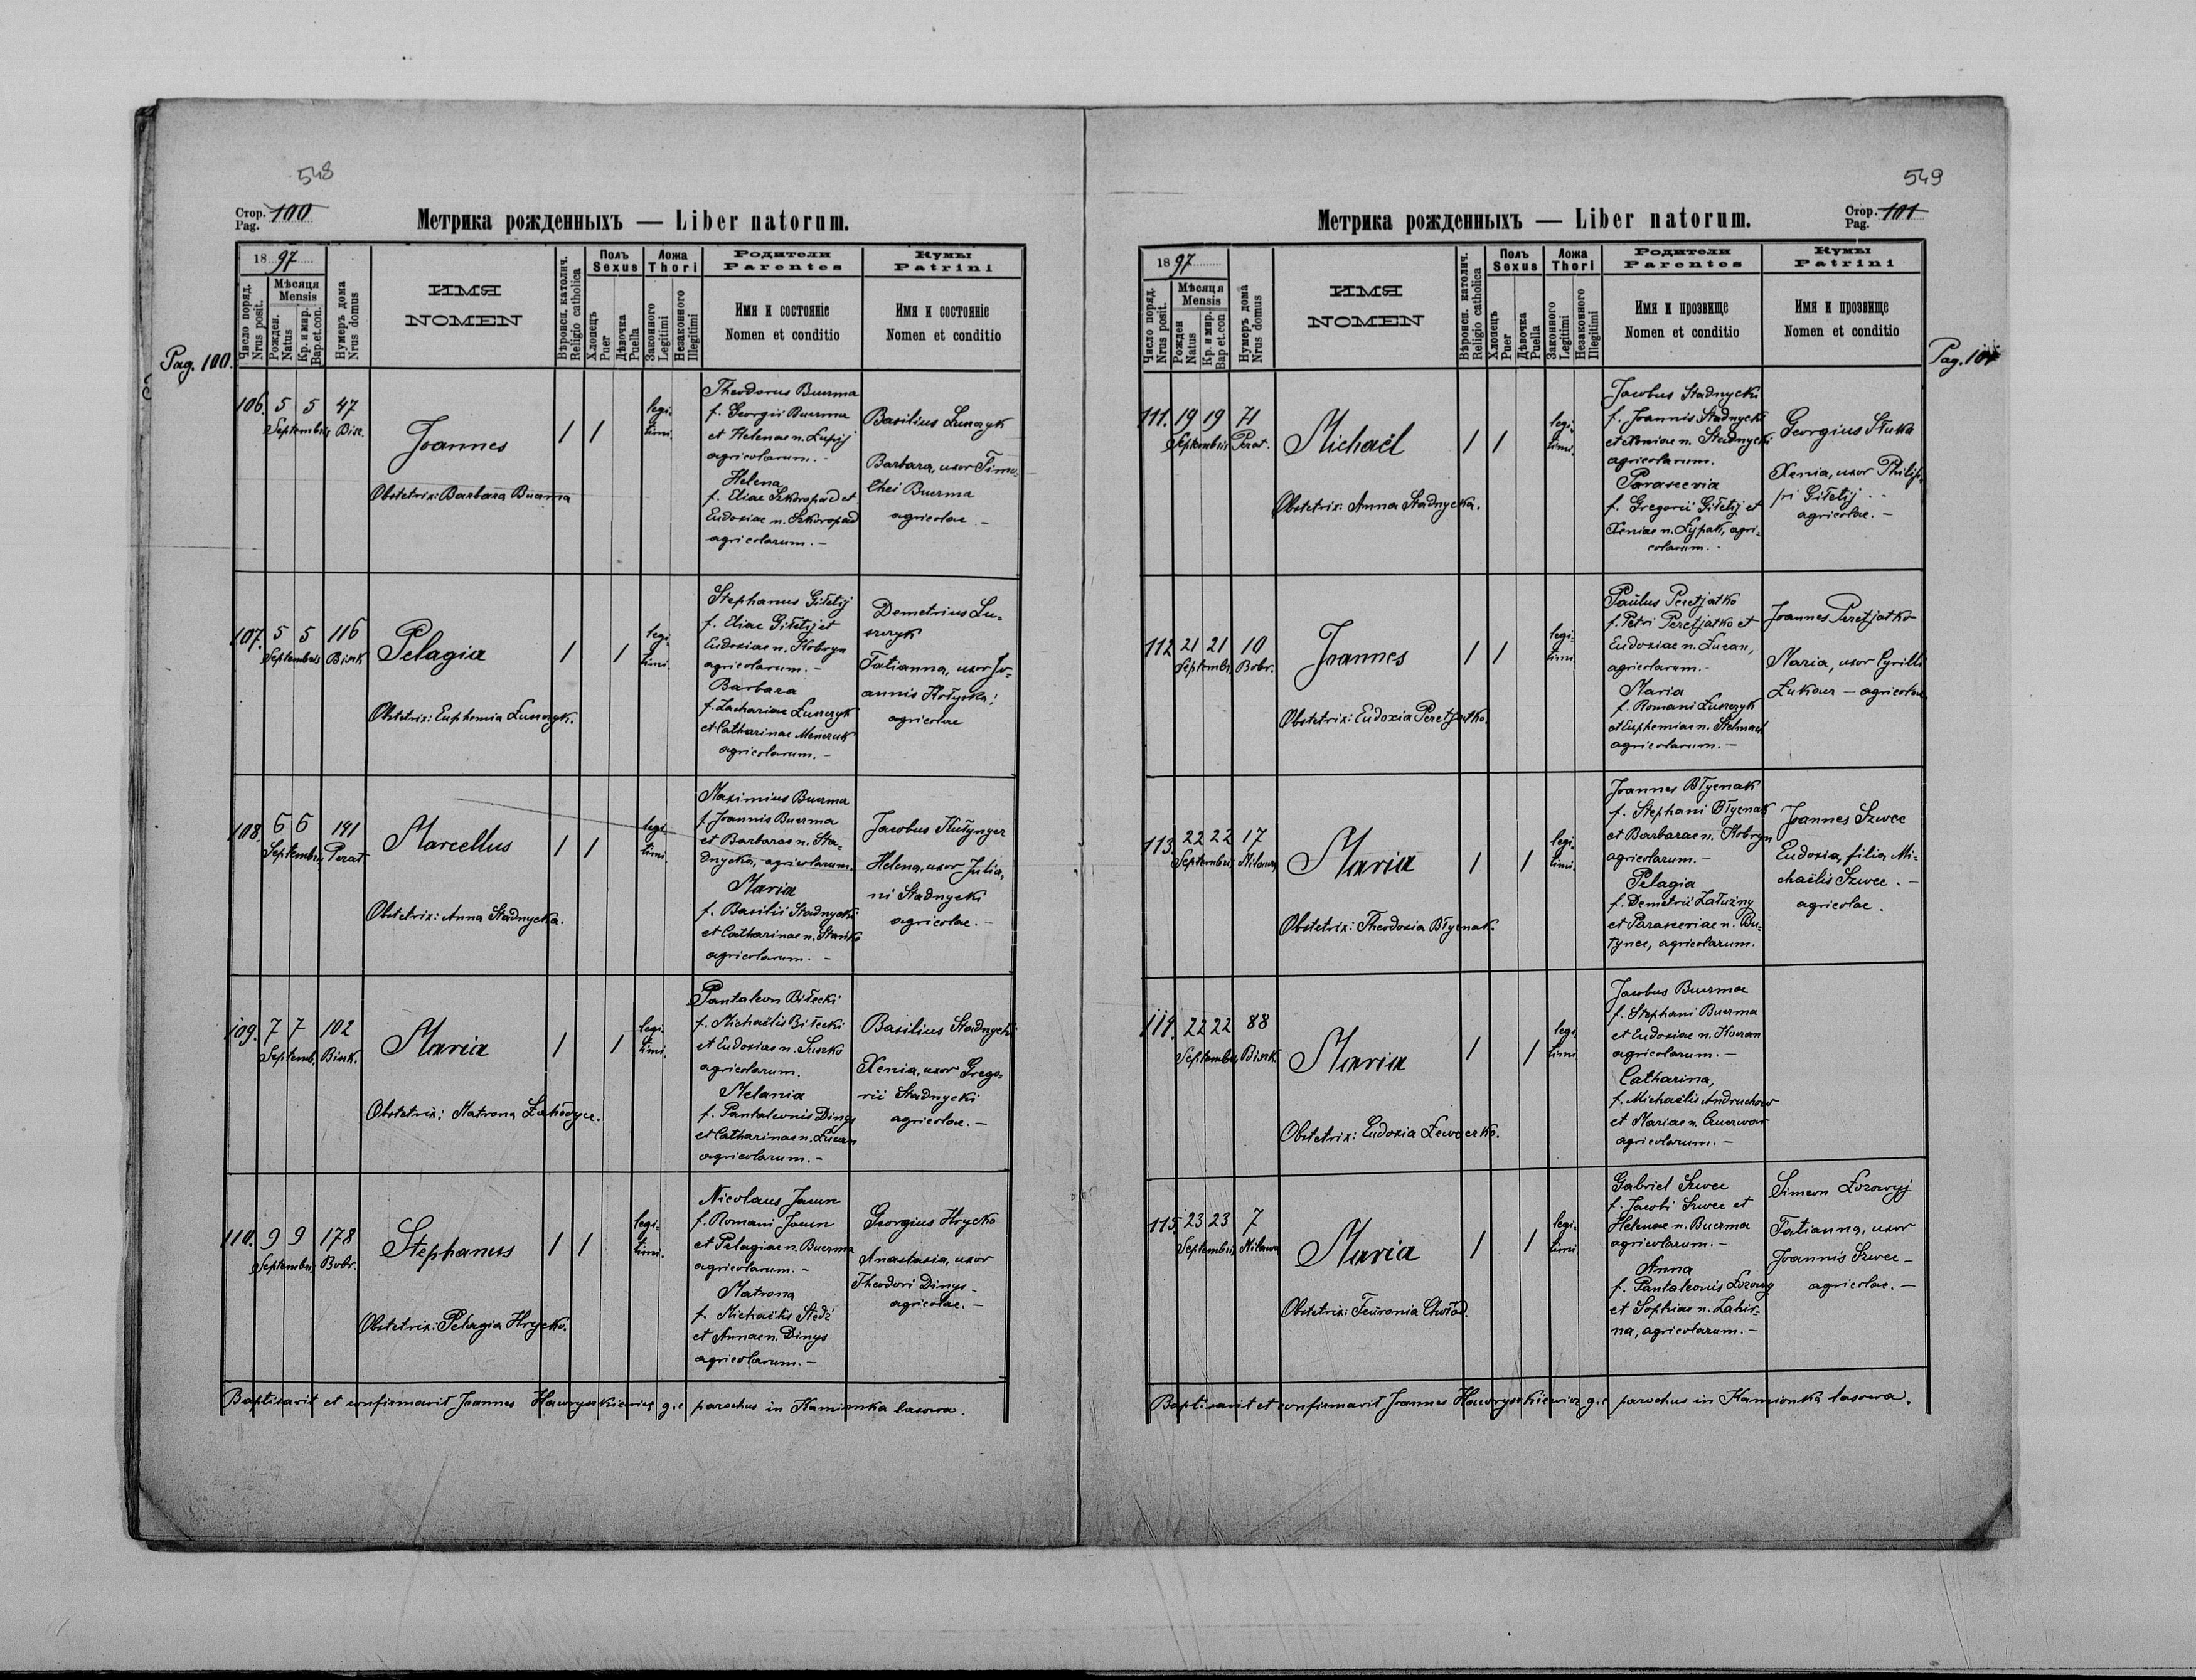 548
Стор. 100
Pag.
Метрика рожденныхъ — Liber natorum.
Pag. 100.
18 97
Мѣсяця
Mensis
Число поряд.
Nrus posit.
Рожден.
Natus
Кр. и мир.
Bap. et. con.
Нумеръ дома
Nrus domus
ИМЯ
NOMEN
Вѣроисп. католич.
Religio catholica
Полъ
Sexus
Хлопецъ
Puer
Дѣвочка
Puella
Ложа
Thori
Законного
Legitimi
Незаконного
Illegitimi
Родители
Parentes
Имя и состояніе
Nomen et conditio
Кумы
Patrini
Имя и состояніе
Nomen et conditio
106. 5 5 47
Septembris Bisc.
Joannes
Obstetrix: Barbara Buerma
/ /
legi-
timi.
Theodorus Buerma
f. Georgii Buerma
et Helenae n. Lupij
agricolarum. -
Helena
f. Eliae Szkoropad et
Eudoxiae n. Szkoropad
agricolarum. -
Basilius Luszczyk
Barbara, uxor Timo-
thei Buerma
agricolae -
107. 5 5 116
Septembris Bisik
Pelagia
Obstetrix: Euphemia Luszczyk.
/ /
legi-
timi.
Stephanus Giletij
f. Eliae Giletij et
Eudoxiae n. Kobryn
agricolarum. -
Barbara
f. Zachariae Luszczyk
et Catharinae Menczuk
agricolarum. -
Demetrius Lu-
szczyk
Tatianna, uxor Jo-
annis
agricolae
108. 6 6 141
Septembris Perat
Marcellus
Obstetrix: Anna Stadnycka.
/ /
legi-
timi.
Maximius Buerma
f. Joannis Buerma
et Barbarae n. Sta-
dnycka, agricolarum.
Maria
f. Basilii Stadnycki
et Catharinae n. Stańko
agricolarum. -
Jacobus Kułynycz
Helena, uxor Julia-
ni Stadnycki
agricolae. -
109. 7 7 102
Septemb. Bisik.
Maria
Obstetrix: Matrona
/ /
legi-
timi.
Pantaleon Biłecki
f. Michaëlis Biłecki
et Eudoxiae n. Suszko
agricolarum.
Melania
f. Pantaleonis Dinys
et Catharinae n. Łucan
agricolarum. -
Basilius Stadnycki
Xenia, uxor Grego-
rii Stadnycki
agricolae. -
110. 9 9 178
Septembris Bobr.
Stephanus
Obstetrix: Pelagia Hrycko.
/ /
legi-
timi.
Nicolaus
f. Romani
et Pelagiae n. Buerma
agricolarum. -
Matrona
f. Michaëlis
et Annae n. Dinys
agricolarum. -
Georgius Hrycko
Anastasia, uxor
Theodori Dinys -
agricolae. -
Baptisavit et confirmavit Joannes Hawryszkiewicz g. c. parochus in Kamionka lasowa.
549
Метрика рожденныхъ — Liber natorum.
Стор. 101
Pag.
Pag. 101
18 97
Мѣсяця
Mensis
Число поряд.
Nrus posit.
Рожден
Natus
Кр. и мир.
Bap et. con
Нумеръ дома
Nrus domus
ИМЯ
NOMEN
Вѣроисп. католич.
Religio catholica
Полъ
Sexus
Хлопецъ
Puer
Дѣвочка
Puella
Ложа
Thori
Законного
Legitimi
Незаконного
Illegitimi
Родители
Parentes
Имя и прозвище
Nomen et conditio
Кумы
Patrini
Имя и прозвище
Nomen et conditio
111. 19 19 71
Septembris Perat.
Michaël
Obstetrix: Anna Stadnycka.
/ /
legi-
timi.
Jacobus Stadnycki
f. Joannis Stadnycki
et Xeniae n. Stadnycki
agricolarum.
Parascevia
f. Gregorii Giłetij et
Xeniae n. Łypak, agri-
colarum.
Georgius Słuka
Xenia, uxor Philip-
pi Giłetij
agricolae. -
112 21 21 10
Septembr. Bobr.
Joannes
Obstetrix: Eudoxia Peretjatko.
/ /
legi-
timi.
Paulus Peretjatko
f. Petri Peretjatko et
Eudoxiae n. Łucan,
agricolarum. -
Maria
f. Romani Łuszczyk
et Euphemiae n. Stelmach
agricolarum. -
Joannes Peretjatko
Maria, uxor Cyrilli
Łukacz - agricolae
113. 22 22 17
Septembris Milawa
Maria
Obstetrix: Theodosia Błyznak.
/ /
legi-
timi.
Joannes Błyznak
f. Stephani Błyznak
et Barbarae n. Kobryn
agricolarum. -
Pelagia
f. Demetrii Załużny
et Parasceviae n. Bu-
tynec, agricolarum.
Joannes Szwec
Eudoxia, filia Mi-
chaëlis Szwec. -
agricolae.
114. 22 22 88
Septembris Bisik.
Maria
Obstetrix: Eudoxia
/ /
legi-
timi
Jacobus Buerma
f. Stephani Buerma
et Eudoxiae n.
agricolarum. -
Catharina,
f. Michaëlis Andruchow
et Mariae n.
agricolarum. -
115. 23 23 7
Septembris Milawa
Maria
Obstetrix: Feuronia
/ /
legi-
timi.
Gabriel Szwec
f. Jacobi Szwec et
Helenae n. Buerma
agricolarum. -
Anna
f. Pantaleonis Łozowyj
et Sophiae n. Zahir-
na, agricolarum. -
Simeon Łozowyj
Tatianna, uxor
Joannis Szwec -
agricolae. -
Baptisavit et confirmavit Joannes Hawryszkiewicz g. c. parochus in Kamionka lasowa.